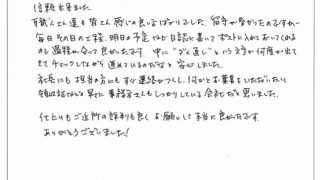 信頼出来ました。
職人さん達も皆さん感じの良い方ばかりでした。留守が多かったのですが
毎日その日の工程、明日の予定なども日誌に書いてポストに入れておいてくれる
ので過程が分って良かったです。中に“ダメ直し”という文字が何度か出て
きてチェックしながら進めているのだなと安心しました。
社長にも担当の方にもすぐ連絡がつくし、何かとお葉書をいただいたり
領収証などの早さに事務方さんもしっかりしている会社だと思いました。
仕上りもご近所の評判も良くお願いして本当に良かったです。
ありがとうございました！